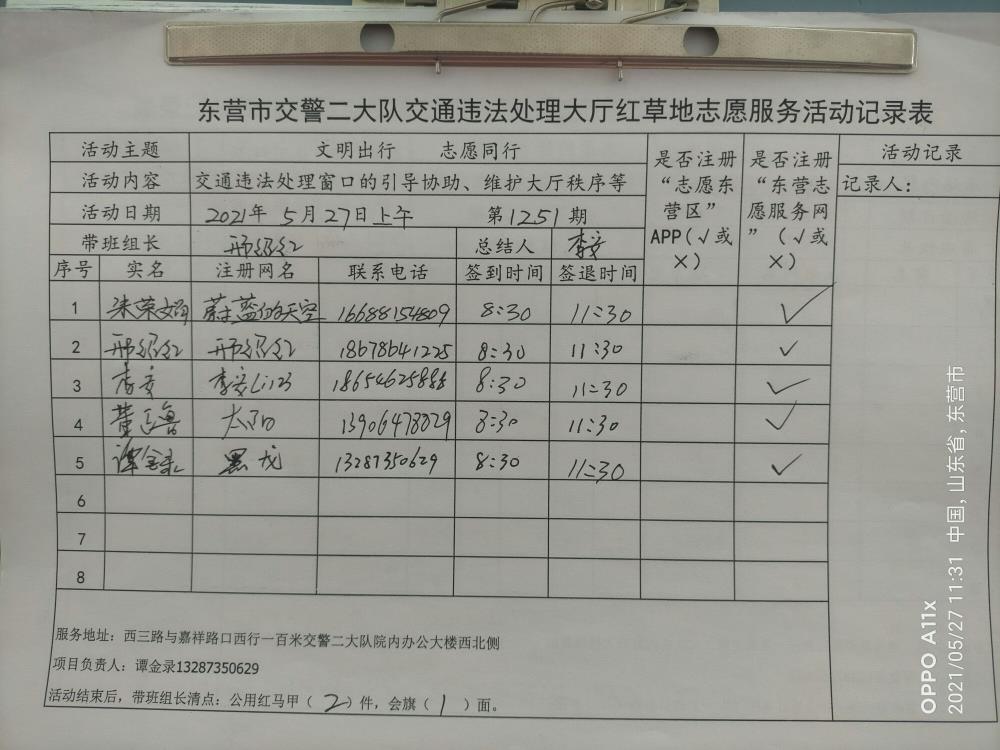 东营市交警二大队交通违法处理大厅红草地志愿服务活动记录表
活动主题 文明出行 志愿同行 是否注册“志愿东营区”APP（√或×） 是否注册“东营志愿服务网”（√或×） 活动记录
活动内容 交通违法处理窗口的引导协助、维护大厅秩序等 记录人：
活动日期 2021年5月27日上午 第1251期
带班组长 邢绍红 总结人 李安
序号 实名 注册网名 联系电话 签到时间 签退时间
1 朱荣娟 蔚蓝的天空 16688154809 8:30 11:30 √
2 邢绍红 邢绍红 18678641225 8:30 11:30 √
3 李安 李安Li123 18654625888 8:30 11:30 √
4 董 鲁 太阳 13906478029 8:30 11:30 √
5 谭金录 黑龙 13287350629 8:30 11:30 √
6
7
8
服务地址：西三路与嘉祥路口西行一百米交警二大队院内办公大楼西北侧
项目负责人：谭金录13287350629
活动结束后，带班组长清点：公用红马甲（2）件，会旗（1）面。
OPPO A11x
2021/05/27 11:31 中国,山东省,东营市